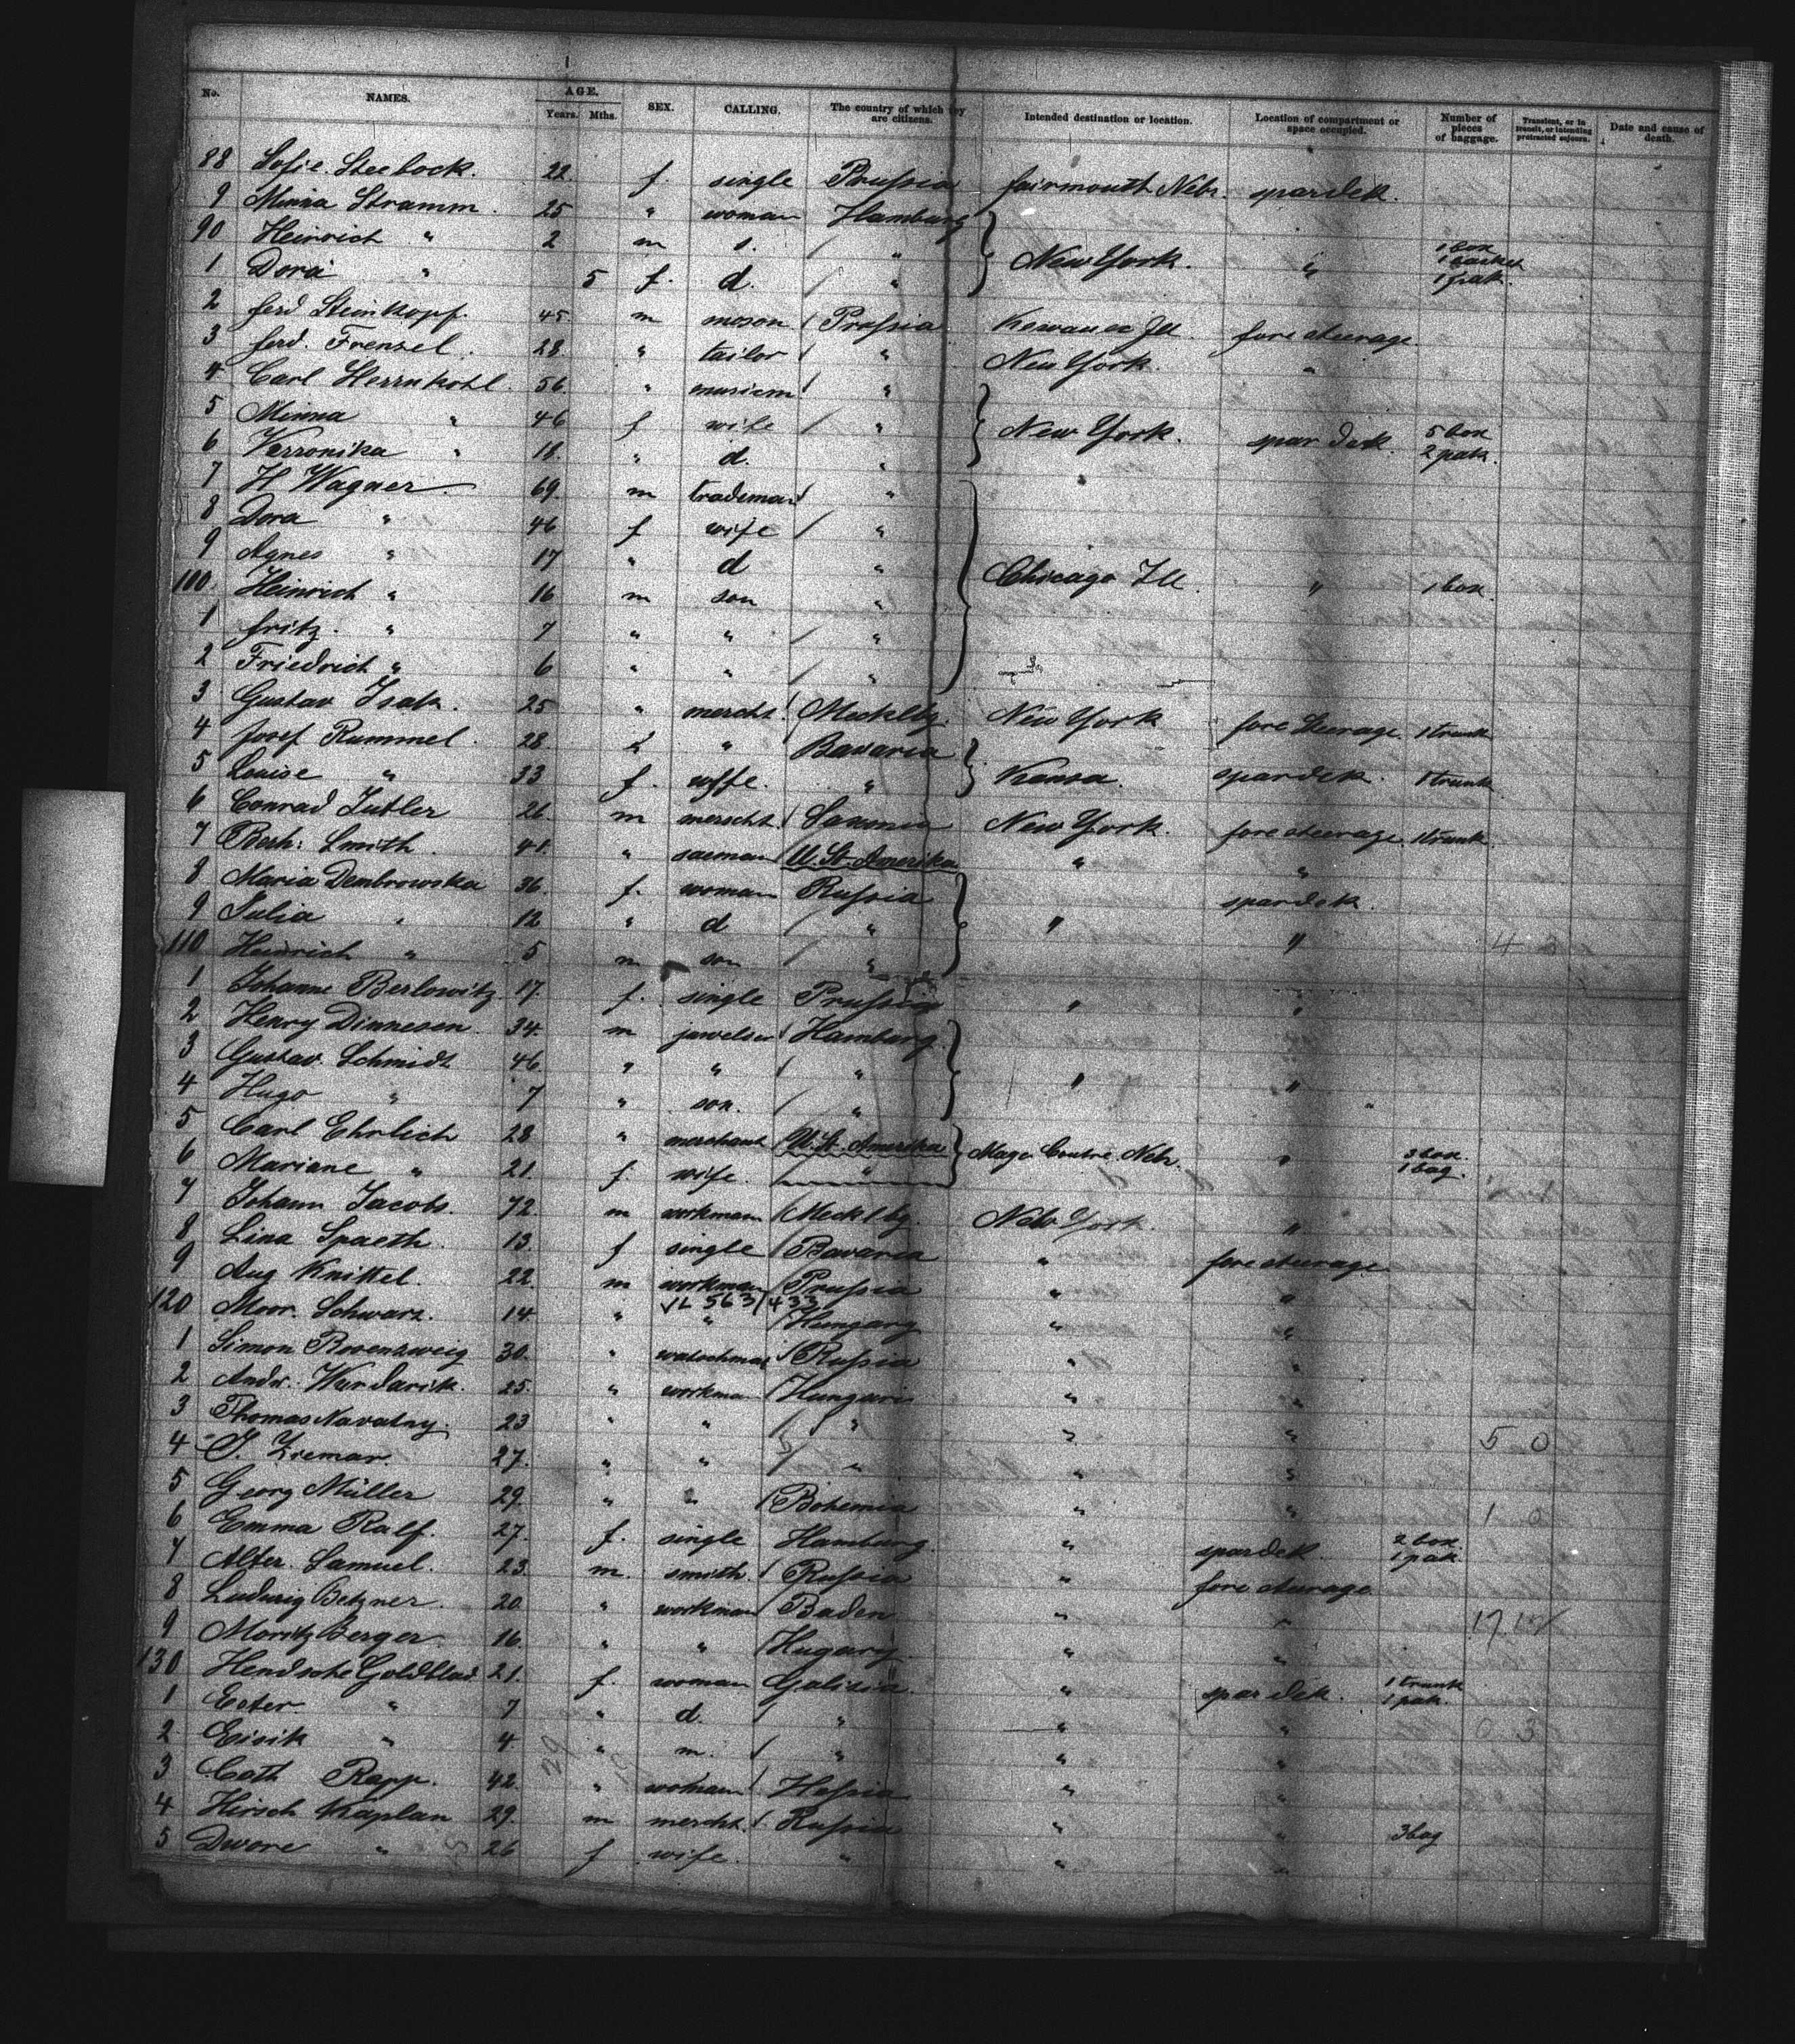 No. NAMES. AGE. Years. Mths. SEX. CALLING. The country of which they are citizens. Intended destination or location. Location of compartment or space occupied. Number of pieces of baggage. Transient, or in transit, or intending protracted sojourn. Date and cause of death.
88 Sofie. Steebock. 22. f. single Prussia fairmouth Nebr. spardek.
9 Minna Stramm. 25 " woman Hamburg
90 Heinrich " 2 m s. " New York. " 1 box 1 basket 1 pak.
1 Dora " 5 f. d. "
2 ferd Steinkopf. 45 m mason Prussia Kewanee Ill. fore steerage.
3 ferd. Frensel. 28. " tailor " New York. "
4 Carl Herrnkohl. 56. " "
5 Minna " 46 f wife " New York. spardek. 5 box 2 pak.
6 Verronika " 18. " d. "
7 H Wagner. 69. m trademan "
8 Dora " 46 f wife "
9 Agnes " 17 " d " Chicago Ill. " 1 box.
100. Heinrich " 16 m son "
1 fritz. " 7 " " "
2 Friedrich " 6 " " "
3 Gustav Isak. 25 " mercht. Mecklbg. New York fore steerage 1 trunk
4 Josef Rummel. 28. " " Bavaria
5 Louise " 33 f. wife. " Kansa. spardek. 1 trunk
6 Conrad Jutler 26. m merscht. New York. fore steerage. 1 trunk
7 Berh: Smith. 41. " saeman U. St. Amerika " "
8 Maria Dembrowska 36. f. woman Russia spardek.
9 Julia " 12 " d " " " 4
110 Heinrich " 5 m son "
1 Johanne Berlowitz 17. f. single Prussia " "
2 Henry Dinnesen. 34. m juwelier Hamburg.
3 Gustav. Schmidt 46 " " " " "
4 Hugo " 7 " son. "
5 Carl Ehrlich 28 " merchant U. St. Amerika Nebr. " 3 box. 1 bag.
6 Mariane " 21. f. wife. "
7 Johann Jacobs. 72. m workman Mecklbg. New York. "
8 Lina Spaeth. 13. f single Bavaria " fore sturage
9 Aug Knittel. 22. m workman Prussia " "
VL 563/433
120 Moor. Schwarz. 14. " " Hungary " "
1 Simon Rosenzweig 30. " watschmak Russia " "
2 Andr. Wurdarik. 25. " workman Hungari " "
3 Thomas Navatny. 23 " " " " " 5 0
4 J. Zieman 27. " " " " "
5 Georg Müller 29. " " Bohemia " " 1 0
6 Emma Ralf. 27. f. single Hamburg " spardek. 2 box. 1 pak.
7 Alter. Samuel. 23. m. smith. Russia " fore sturage
8 Ludwig Betzner. 20. " workman Baden " " 17
9 Moritz Berger. 16. " " Hugary " "
130 Hendsche Goldblad 21. f. woman Galizia. " spardek. 1 trunk 1 pak.
1 Ester. " 7 " d. " " " 0 3
2 Eisik " 4. " m. " " "
3 Cath Rapp. 42. " woman Hessia " "
4 Hirsch Kaplan 29. m mercht. Russia " " 3 bag
5 Dwore " 26 f wife. " " "